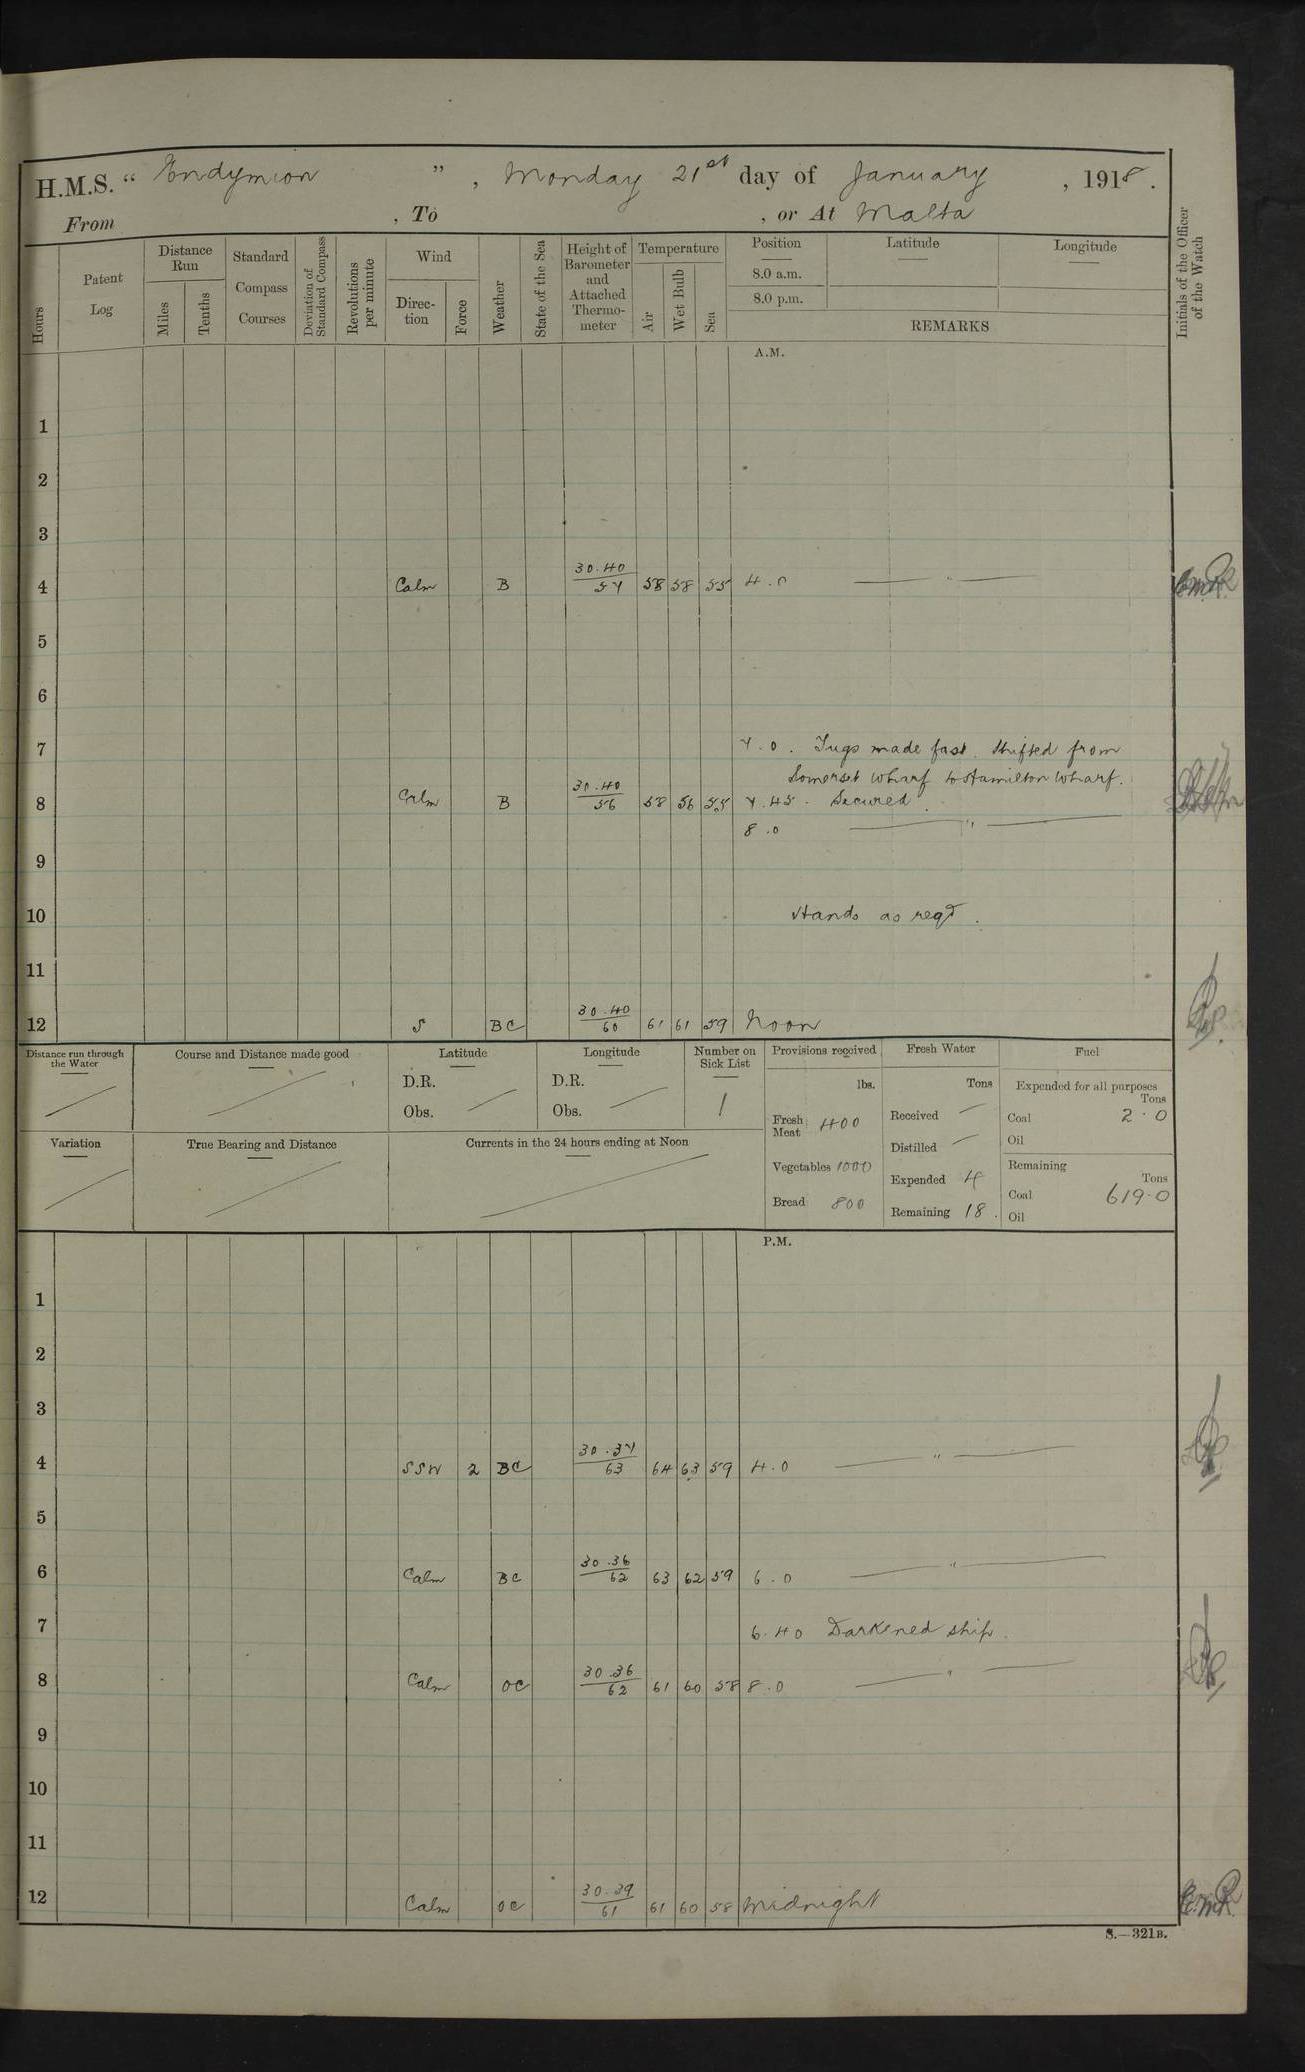 H.M.S. “ Endymion ” , Monday 21st day of January , 1918 .
From , To , or At Malta
Hours
Patent Log
Distance Run
Miles
Tenths
Standard Compass Courses
Deviation of Standard Compass
Revolutions per minute
Wind
Direc-tion
Force
Weather
State of the Sea
Height of Barometer and Attached Thermo-meter
Temperature
Air
Wet Bulb
Sea
Position
8.0 a.m.
8.0 p.m.
Latitude
Longitude
REMARKS
Initials of the Officer of the Watch
A.M.
1
2
3
4 Calm B 30.40 / 57 58 58 55 4.0 — " —
5
6
7 7.0. Tugs made fast. Shifted from
Somerset Wharf to Hamilton Wharf.
8 Calm B 30.40 / 56 58 56 55 7.45. Secured.
8.0 — " —
9
10 Hands as reqd.
11
12 S BC 30.40 / 60 61 61 59 Noon
Distance run through the Water
Course and Distance made good
Latitude
D.R.
Obs.
Longitude
D.R.
Obs.
Number on Sick List
1
Provisions received
lbs.
Fresh Meat 400
Vegetables 1000
Bread 800
Fresh Water
Tons
Received
Distilled
Expended 4
Remaining 18.
Fuel
Expended for all purposes
Tons
Coal 2.0
Oil
Remaining
Tons
Coal 619.0
Oil
Variation
True Bearing and Distance
Currents in the 24 hours ending at Noon
P.M.
1
2
3
4 SSW 2 BC 30.37 / 63 64 63 59 4.0 — " —
5
6 Calm BC 30.36 / 62 63 62 59 6.0 — " —
7 6.40 Darkened ship.
8 Calm OC 30.36 / 62 61 60 58 8.0 — " —
9
10
11
12 Calm OC 30.39 / 61 61 60 58 Midnight
S.—321B.